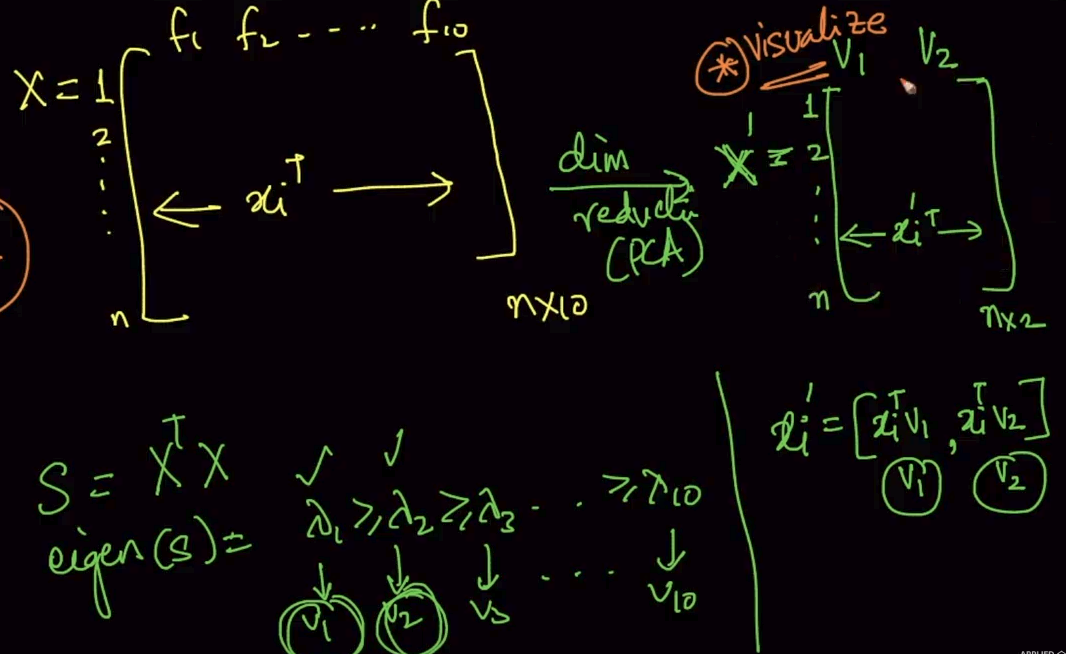 f₁ f₂ - - - ‥ f₁₀
X = 1
2
⋮
← xᵢᵀ →
n
n×10
dim
reducti
(PCA)
* visualize
V₁ V₂
1
X' = 2
⋮
← xᵢ'ᵀ →
n
n×2
S = XᵀX
✓ ✓
eigen(S) = λ₁ ≥ λ₂ ≥ λ₃ . . . ≥ λ₁₀
↓ ↓ ↓ . . . ↓
V₁ V₂ V₃ V₁₀
xᵢ' = [xᵢᵀV₁, xᵢᵀV₂]
V₁ V₂